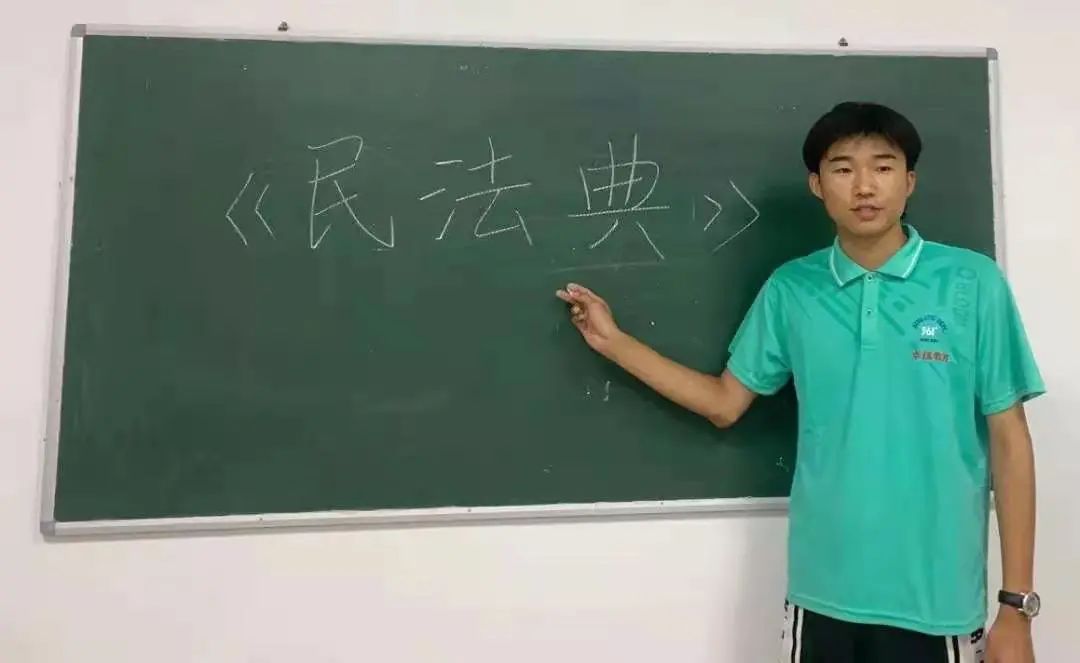 《民法典》